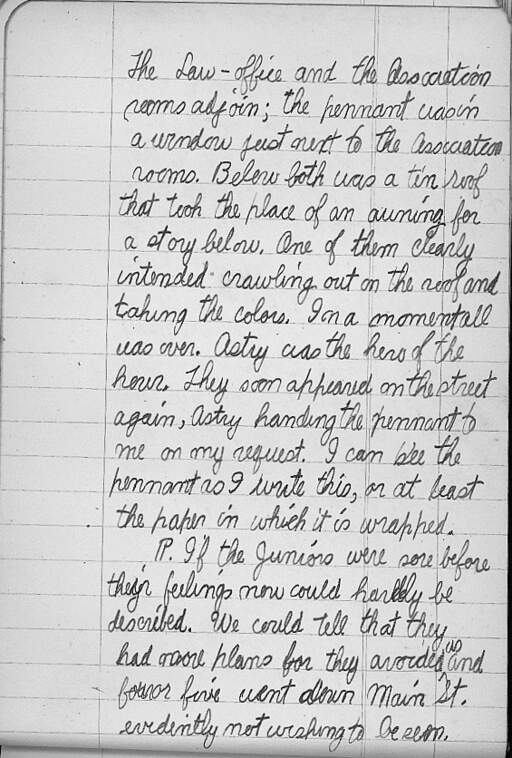 The Law-office and the Association
rooms adjoin; the pennant was in
a window just next to the Association
rooms. Below both was a tin roof
that took the place of an awning for
a story below. One of them clearly
intended crawling out on the roof and
taking the colors. In a moment all
was over. Astry was the hero of the
hour. They soon appeared on the street
again, Astry handing the pennant to
me on my request. I can see the
pennant as I write this, or at least
the paper in which it is wrapped.
P. If the Juniors were sore before
their feelings now could hardly be
described. We could tell that they
had more plans for they avoided us and
four or five went down Main St.
evidently not wishing to be seen.